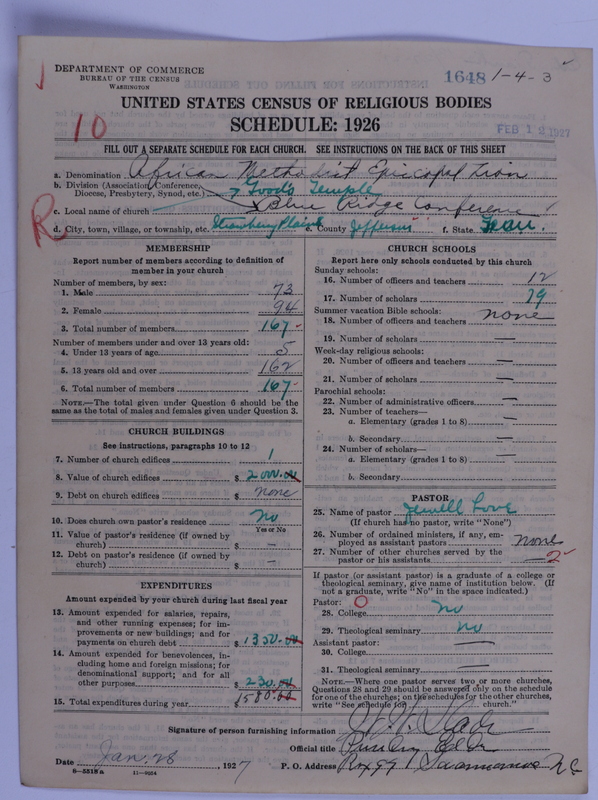 DEPARTMENT OF COMMERCE
BUREAU OF THE CENSUS
WASHINGTON
1648 1-4-3
UNITED STATES CENSUS OF RELIGIOUS BODIES
SCHEDULE: 1926
10
FEB 12 1927
FILL OUT A SEPARATE SCHEDULE FOR EACH CHURCH. SEE INSTRUCTIONS ON THE BACK OF THIS SHEET
a. Denomination African Methodist Episcopal Zion
b. Division (Association, Conference, Diocese, Presbytery, Synod, etc.) Good's Temple
c. Local name of church Blue Ridge Conference
R
d. City, town, village, or township, etc. Strawberry Plains e. County Jefferson f. State Tenn.
MEMBERSHIP
Report number of members according to definition of
member in your church
Number of members, by sex:
1. Male 73
2. Female 94
3. Total number of members 167
Number of members under and over 13 years old:
4. Under 13 years of age 5
5. 13 years old and over 162
6. Total number of members 167
NOTE.—The total given under Question 6 should be the
same as the total of males and females given under Question 3.
CHURCH BUILDINGS
See instructions, paragraphs 10 to 12
7. Number of church edifices 1
8. Value of church edifices $ 2000.00
9. Debt on church edifices $ none
10. Does church own pastor's residence no
Yes or No
11. Value of pastor's residence (if owned by
church) $ —
12. Debt on pastor's residence (if owned by
church) $ —
EXPENDITURES
Amount expended by your church during last fiscal year
13. Amount expended for salaries, repairs,
and other running expenses; for im-
provements or new buildings; and for
payments on church debt $ 1350.00
14. Amount expended for benevolences, in-
cluding home and foreign missions; for
denominational support; and for all
other purposes $ 230.00
15. Total expenditures during year $ 1580.00
CHURCH SCHOOLS
Report here only schools conducted by this church
Sunday schools:
16. Number of officers and teachers 12
17. Number of scholars 79
Summer vacation Bible schools:
18. Number of officers and teachers none
19. Number of scholars —
Week-day religious schools:
20. Number of officers and teachers —
21. Number of scholars —
Parochial schools:
22. Number of administrative officers —
23. Number of teachers—
a. Elementary (grades 1 to 8) —
b. Secondary —
24. Number of scholars—
a. Elementary (grades 1 to 8) —
b. Secondary
PASTOR
25. Name of pastor Jewell Love
(If church has no pastor, write "None")
26. Number of ordained ministers, if any, em-
ployed as assistant pastors none
27. Number of other churches served by the
pastor or his assistants 2
If pastor (or assistant pastor) is a graduate of a college or
theological seminary, give name of institution below. (If
not a graduate, write "No" in the space indicated.)
Pastor:
28. College no
29. Theological seminary no
Assistant pastor:
30. College —
31. Theological seminary —
NOTE.—Where one pastor serves two or more churches,
Questions 28 and 29 should be answered only on the schedule
for one of the churches; on the schedules for the other churches,
write "See schedule for church."
Signature of person furnishing information
Official title Elder
Date Jan. 28 1927 P. O. Address NC
8—5518a 11—9694